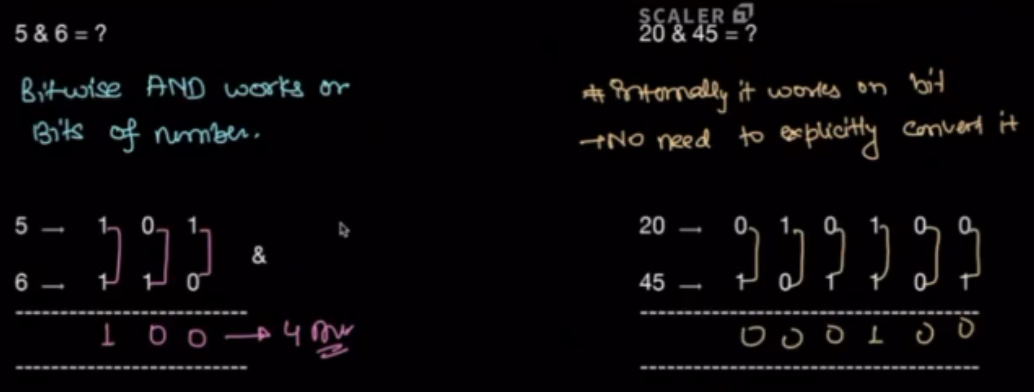 5 & 6 = ?
Bitwise AND works on
Bits of number.
5 → 1 0 1
&
6 → 1 1 0
1 0 0 → 4 Ans
SCALER
20 & 45 = ?
# Internally it works on bit
→ No need to explicitly convert it
20 → 0 1 0 1 0 0
45 → 1 0 1 1 0 1
0 0 0 1 0 0